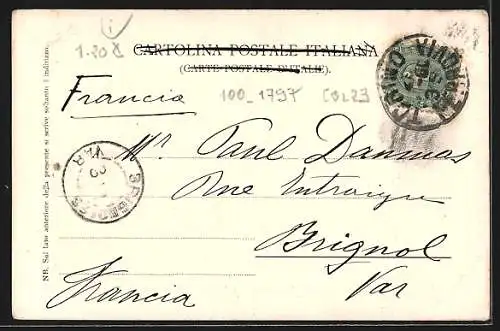 1.20
CARTOLINA POSTALE ITALIANA
(CARTE POSTALE D'ITALIE).
Francia
100_1797 COL23
TORINO
Mr Paul Daumas
Rue Entraigue
Brignol
Var
Francia
BRIGNOLES
VAR
NB. Sul lato anteriore della presente si scrive soltanto l'indirizzo.